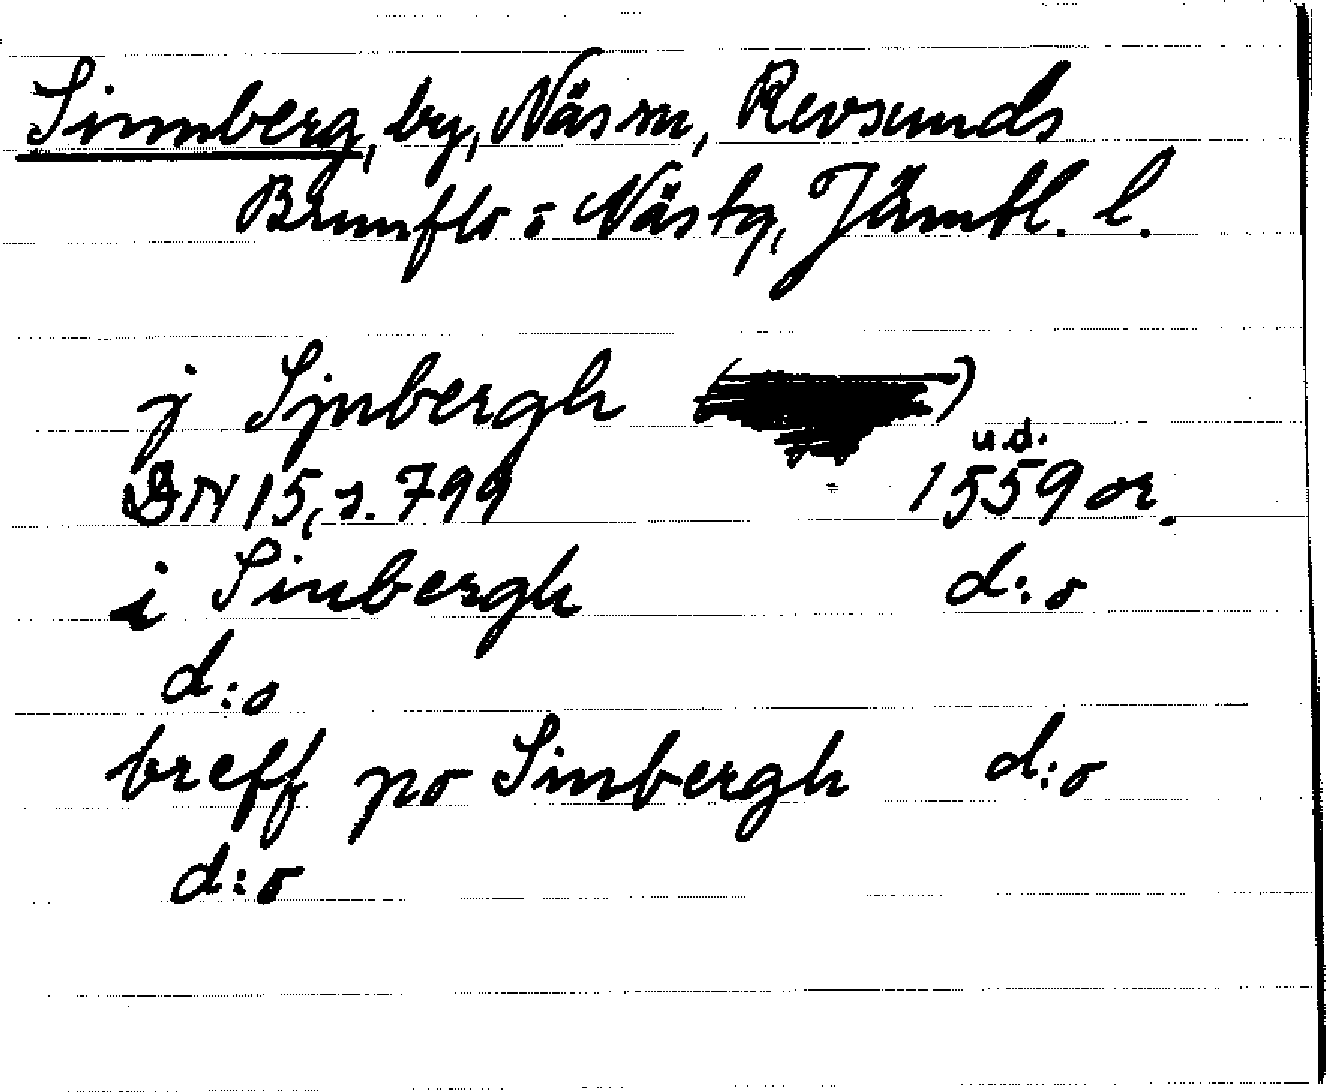 Sinnberg, by, Näs sn, Revsunds
Brunflo o Näs tg, Jämtl. l.
j Sjnbergh
u.d.
DN 15, s. 799 1559 or.
i Sinbergh d:o
d:o
breff po Sinbergh d:o
d:o